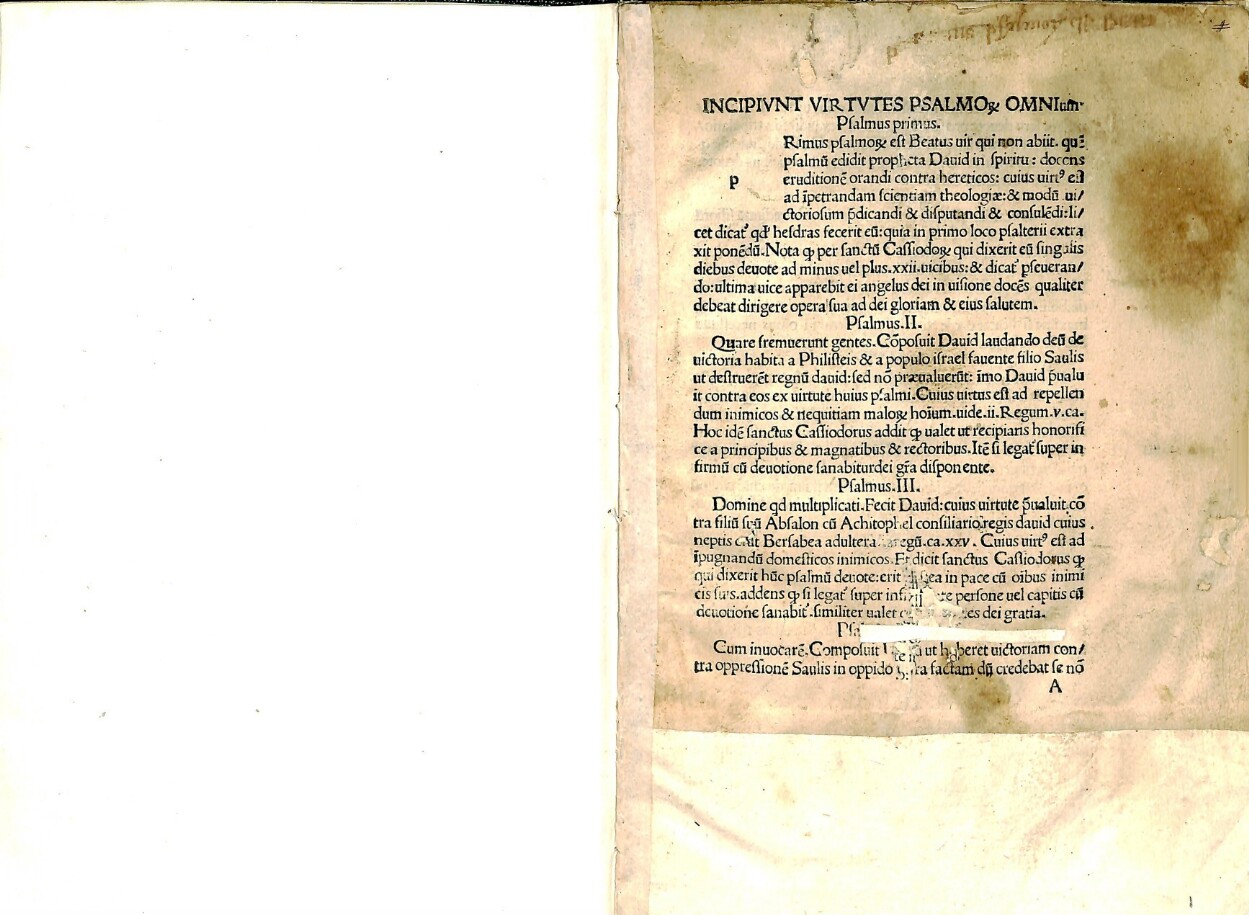 INCIPIVNT VIRTVTES PSALMOꝝ OMNIum.
Pſalmus primus.
Rimus pſalmoꝝ eſt Beatus uir qui non abiit. quē
pſalmū edidit propheta Dauid in ſpiritu: docens
p
eruditionē orandi contra hereticos: cuius uirtꝰ eſt
ad īpetrandam ſcientiam theologiæ: & modū ui/
ctorioſum p̄dicandi & diſputandi & conſulēdi: li/
cet dicat᷑ qď heſdras fecerit eū: quia in primo loco pſalterii extra
xit ponēdū. Nota ꝙ per ſanctū Caſſiodoꝝ qui dixerit eū ſingulis
diebus deuote ad minus uel plus .xxii. uicibus: & dicat᷑ pſeueran/
do: ultima uice apparebit ei angelus dei in uiſione docēs qualiter
debeat dirigere opera ſua ad dei gloriam & eius ſalutem.
Pſalmus .II.
Quare fremuerunt gentes. Cōpoſuit Dauid laudando deū de
uictoria habita a Philiſteis & a populo iſrael fauente filio Saulis
ut deſtruerēt regnū dauid: ſed nō præualuerūt: īmo Dauid p̄ualu
it contra eos ex uirtute huius pſalmi. Cuius uirtus eſt ad repellen
dum inimicos & nequitiam maloꝝ hoīum. uide .ii. Regum .v. ca.
Hoc idē ſanctus Caſſiodorus addit ꝙ ualet ut recipiaris honorifi
ce a principibus & magnatibus & rectoribus. Itē ſi legat᷑ ſuper in
firmū cū deuotione ſanabiturdei gr̄a diſponente.
Pſalmus .III.
Domine qd multiplicati. Fecit Dauid: cuius uirtute p̄ualuit cō
tra filiū ſuū Abſalon cū Achitophel conſiliario regis dauid cuius
neptis erat Berſabea adultera regū. ca. xxv. Cuius uirtꝰ eſt ad
īpugnandū domeſticos inimicos. Et dicit ſanctus Caſſiodorus ꝙ
qui dixerit hūc pſalmū deuote: erit in pace cū oībus inimi
cis ſuis. addens ꝙ ſi legat᷑ ſuper perſone uel capitis cū
deuotione ſanabit᷑. ſimiliter ualet dei gratia.
Cum inuocarē. Compoſuit ut haberet uictoriam con/
tra oppreſſionē Saulis in oppido factam dū credebat ſe nō
A